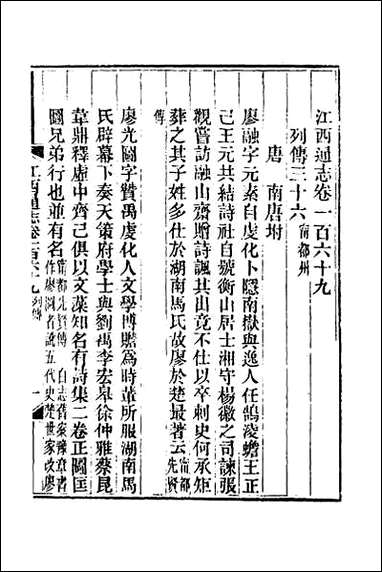 江西通志卷一百六十九
列傳三十六 甯都州
唐 南唐坿
廖融字元素自虔化卜隱南嶽與逸人任鵠淩蟾王正
己王元共結詩社自號衡山居士湘守楊徽之司諫張
觀嘗訪融山齋贈詩諷其出竟不仕以卒刺史何承矩
葬之其子姓多仕於湖南馬氏故廖於楚最著云 甯都先賢
傳
廖光圖字贊禹虔化人文學博贍為時輩所服湖南馬
氏辟幕下奏天策府學士與劉禹李宏皋徐仲雅蔡昆
韋鼎釋虛中齊己俱以文藻知名有詩集二卷正圖匡
國兄弟行也並有名 甯都先賢傳 白志舊家豫章書
作廖淵者訛五代史楚世家改廖
江西通志卷一百六十九 列傳 一